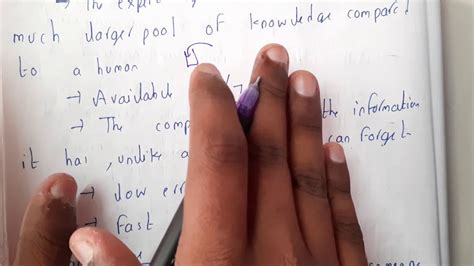 → The expert
much larger pool of knowledge compared
to a human
→ Available
→ The comp the information
it has, unlike a can forget
→ low err
→ fast